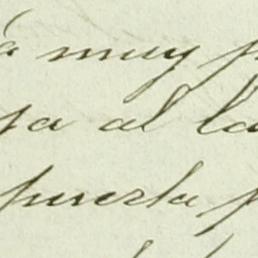 á muy p
sa al la
puerta p